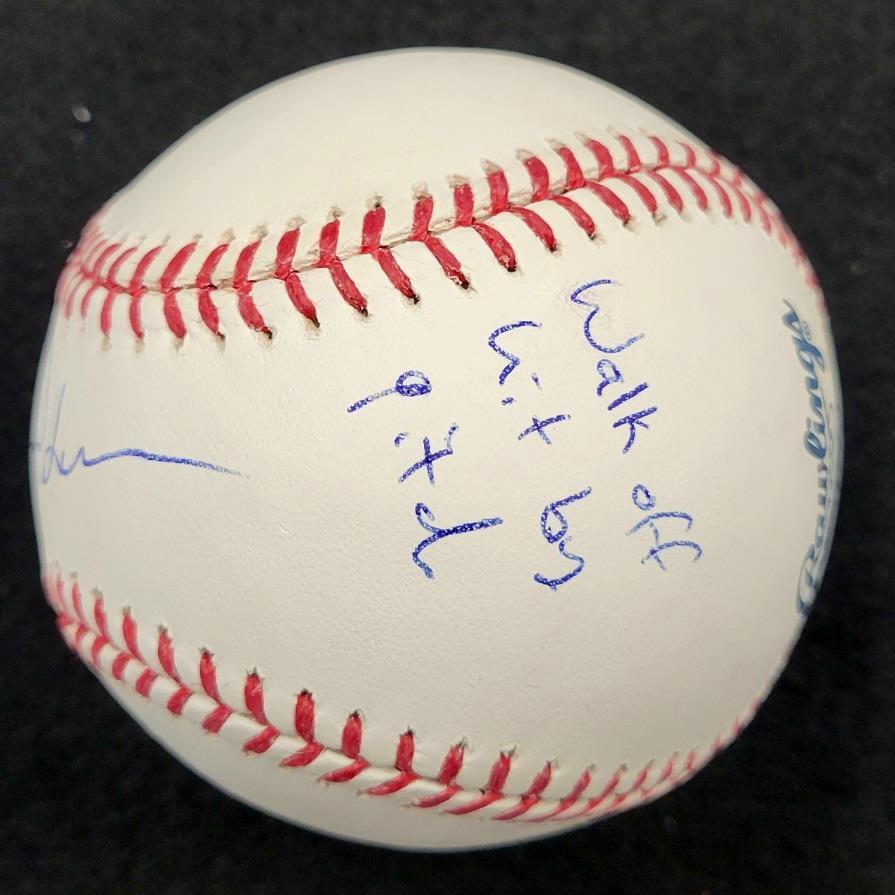 Walk off
hit by
pitch
Rawlings